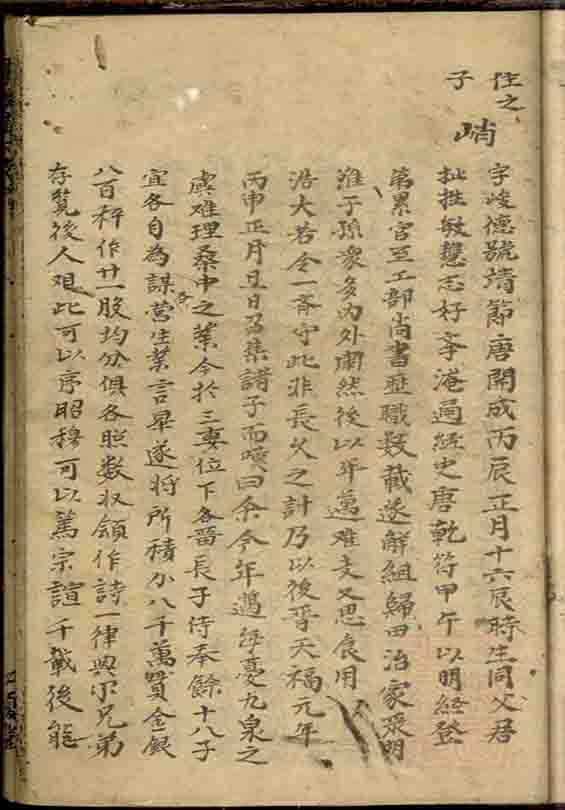 性之子
峭 字峻德號靖節唐開成丙辰正月十六辰時生同父居
性敏慧志好學淹通經史唐乾符甲午以明經登
第累官至工部尚書歷職数載遂解組歸田治家嚴明
惟子孫眾多內外肅然後以年邁难支又思食用
浩大若令一斉守此非長久之計乃以後晉天福元年
丙申正月旦日召集諸子而嘆曰余今年邁每憂九泉之
虞难理桑中之業今於三妻位下各留長子侍奉餘十八子
宜各自為謀各營生業言畢遂將所積分八千萬貫金銀
八百秤作廿一股均分俱各照数收領作詩一律與尔兄弟
存覧後人观此可以序昭穆可以篤宗誼千載後能